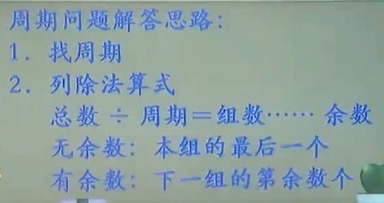 周期问题解答思路:
1. 找周期
2. 列除法算式
总数 ÷ 周期＝组数…… 余数
无余数: 本组的最后一个
有余数: 下一组的第余数个